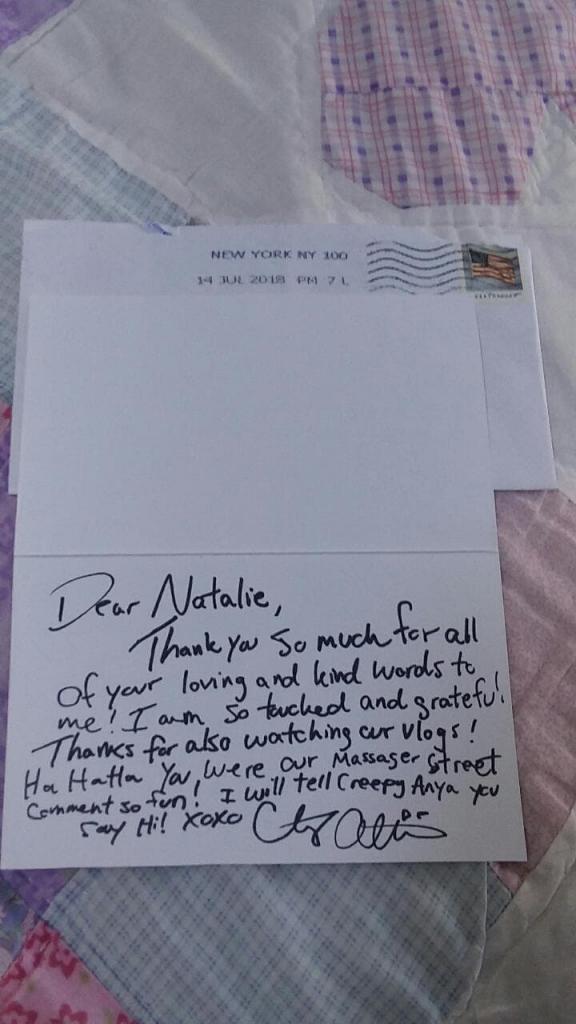 NEW YORK NY 100
14 JUL 2018 PM 7 L
Dear Natalie,
Thank you so much for all
of your loving and kind words to
me! I am so touched and grateful!
Thanks for also watching our vlogs!
Ha HaHa You were our Massager Street
Comment so fun! I will tell Creepy Anya you
say Hi! xoxo